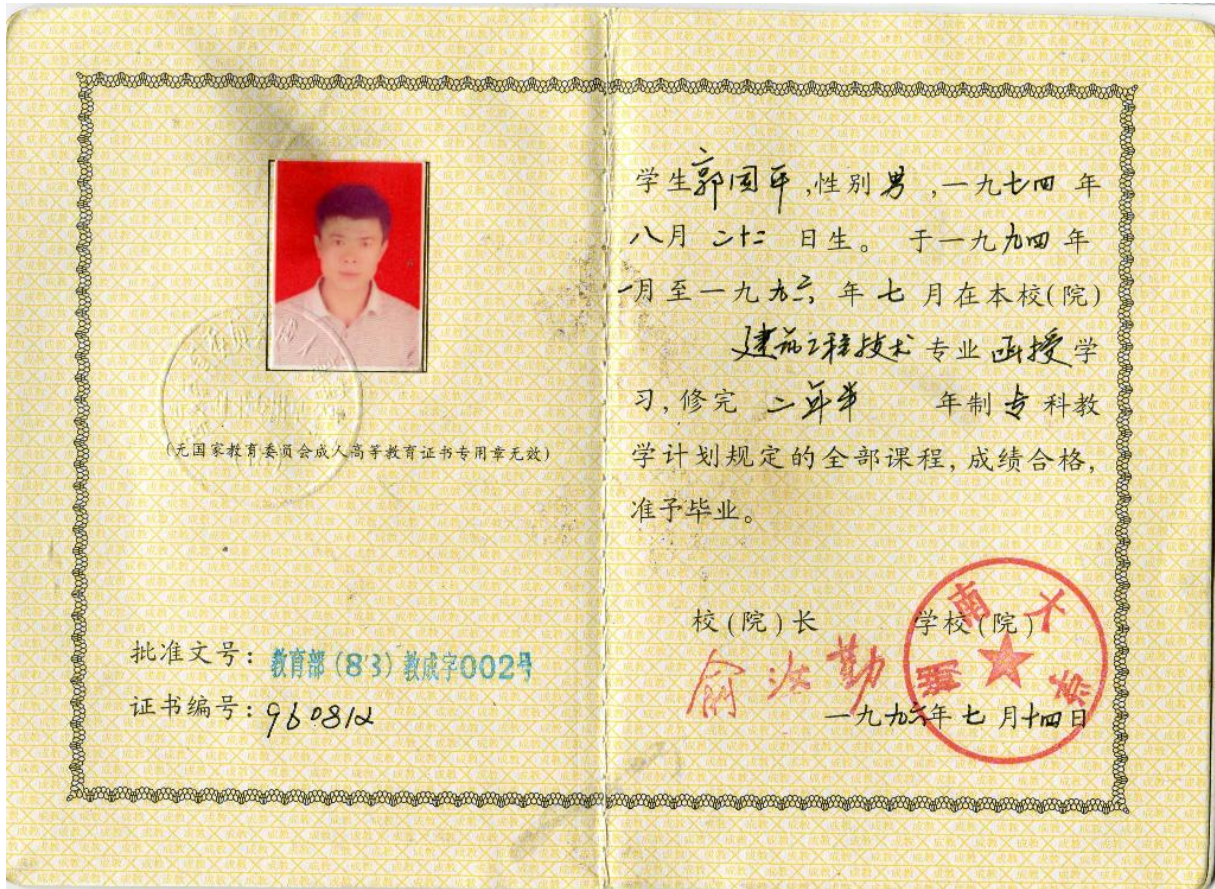 (无国家教育委员会成人高等教育证书专用章无效)
批准文号：教育部(83)教成字002号
证书编号：960812
学生郭国平,性别男,一九七四年
八月二十二日生。于一九九四年
一月至一九九六年七月在本校(院)
建筑工程技术专业函授学
习,修完二年半年制专科教
学计划规定的全部课程,成绩合格,
准予毕业。
校(院)长 学校(院)
湖南大学
一九九六年七月十四日